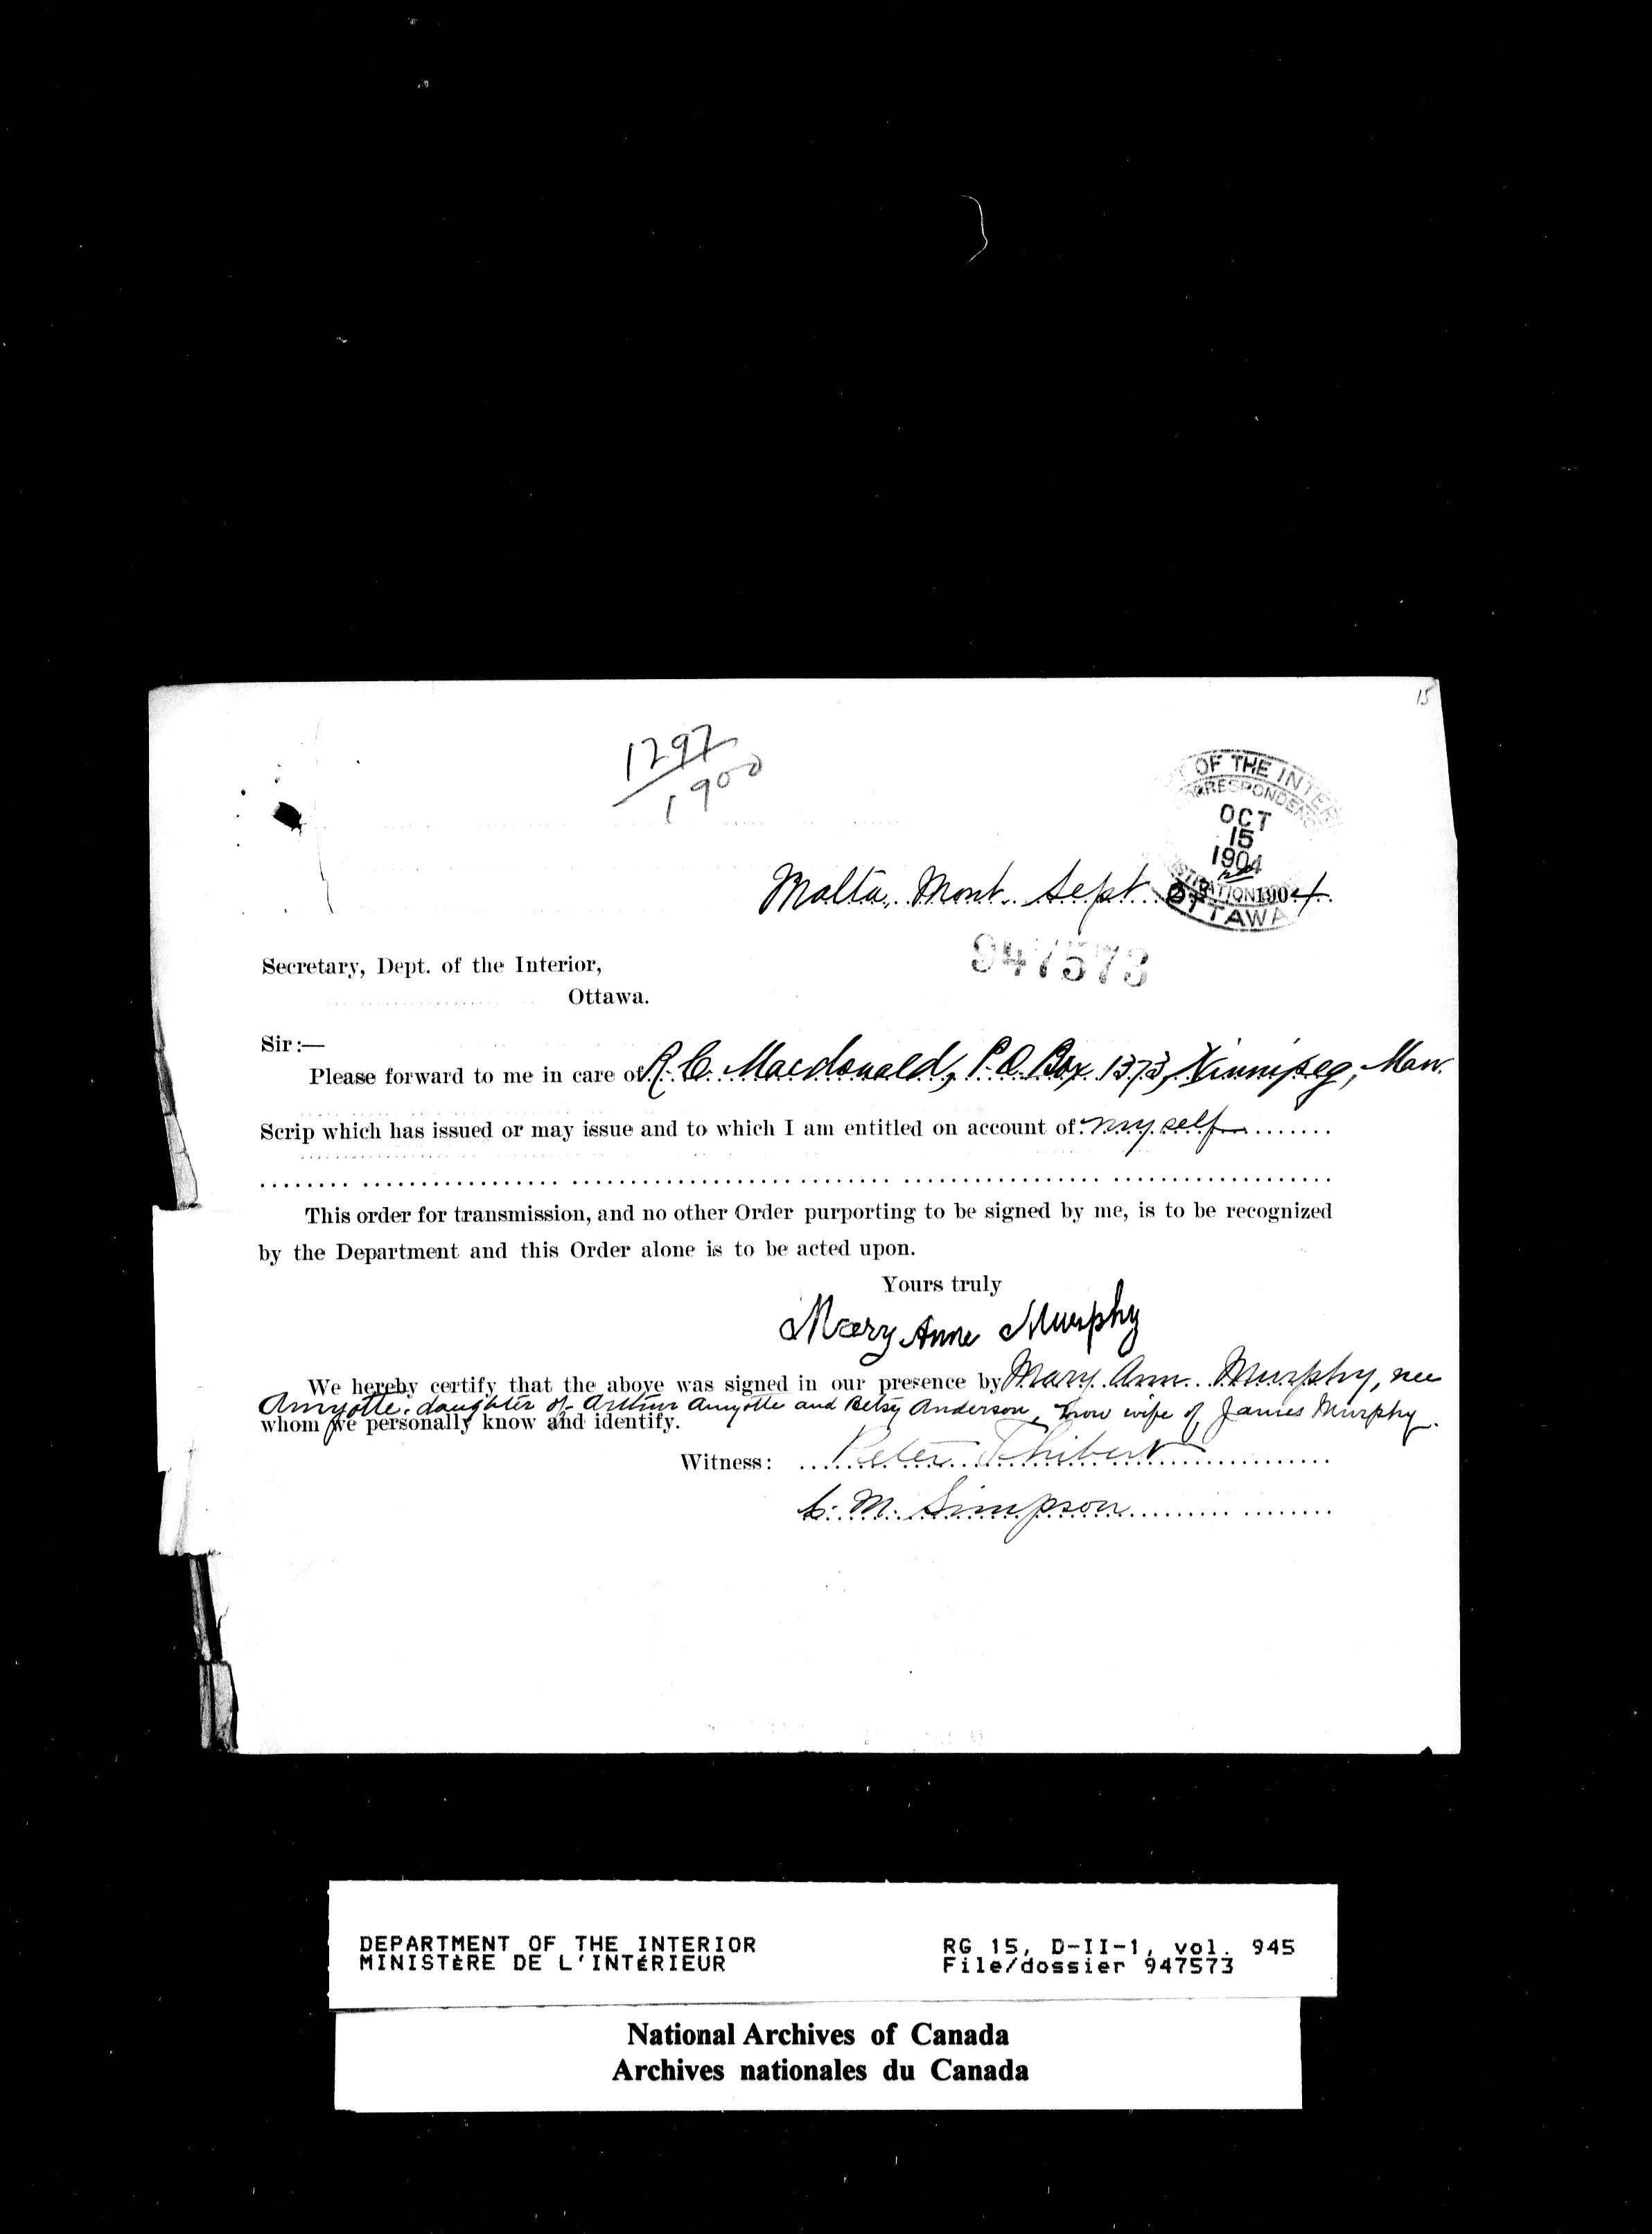 15
1297
1900
T OF THE INTER
CORRESPONDENC
OCT
15
1904
STRATION
OTTAWA
Malta, Mont. Sept. 1904
947573
Secretary, Dept. of the Interior,
Ottawa.
Sir:—
Please forward to me in care of R. C. Macdonald, P.O. Box 1373, Winnipeg, Man.
Scrip which has issued or may issue and to which I am entitled on account of myself
This order for transmission, and no other Order purporting to be signed by me, is to be recognized
by the Department and this Order alone is to be acted upon.
Yours truly
Mary Anne Murphy
We hereby certify that the above was signed in our presence by Mary Ann Murphy, nee
Amyotte, daughter of Arthur Amyotte and Betsy Anderson, now wife of James Murphy.
whom we personally know and identify.
Witness: Peter Thibert
C. M. Simpson
DEPARTMENT OF THE INTERIOR
MINISTÈRE DE L'INTÉRIEUR
RG 15, D-II-1, vol. 945
File/dossier 947573
National Archives of Canada
Archives nationales du Canada